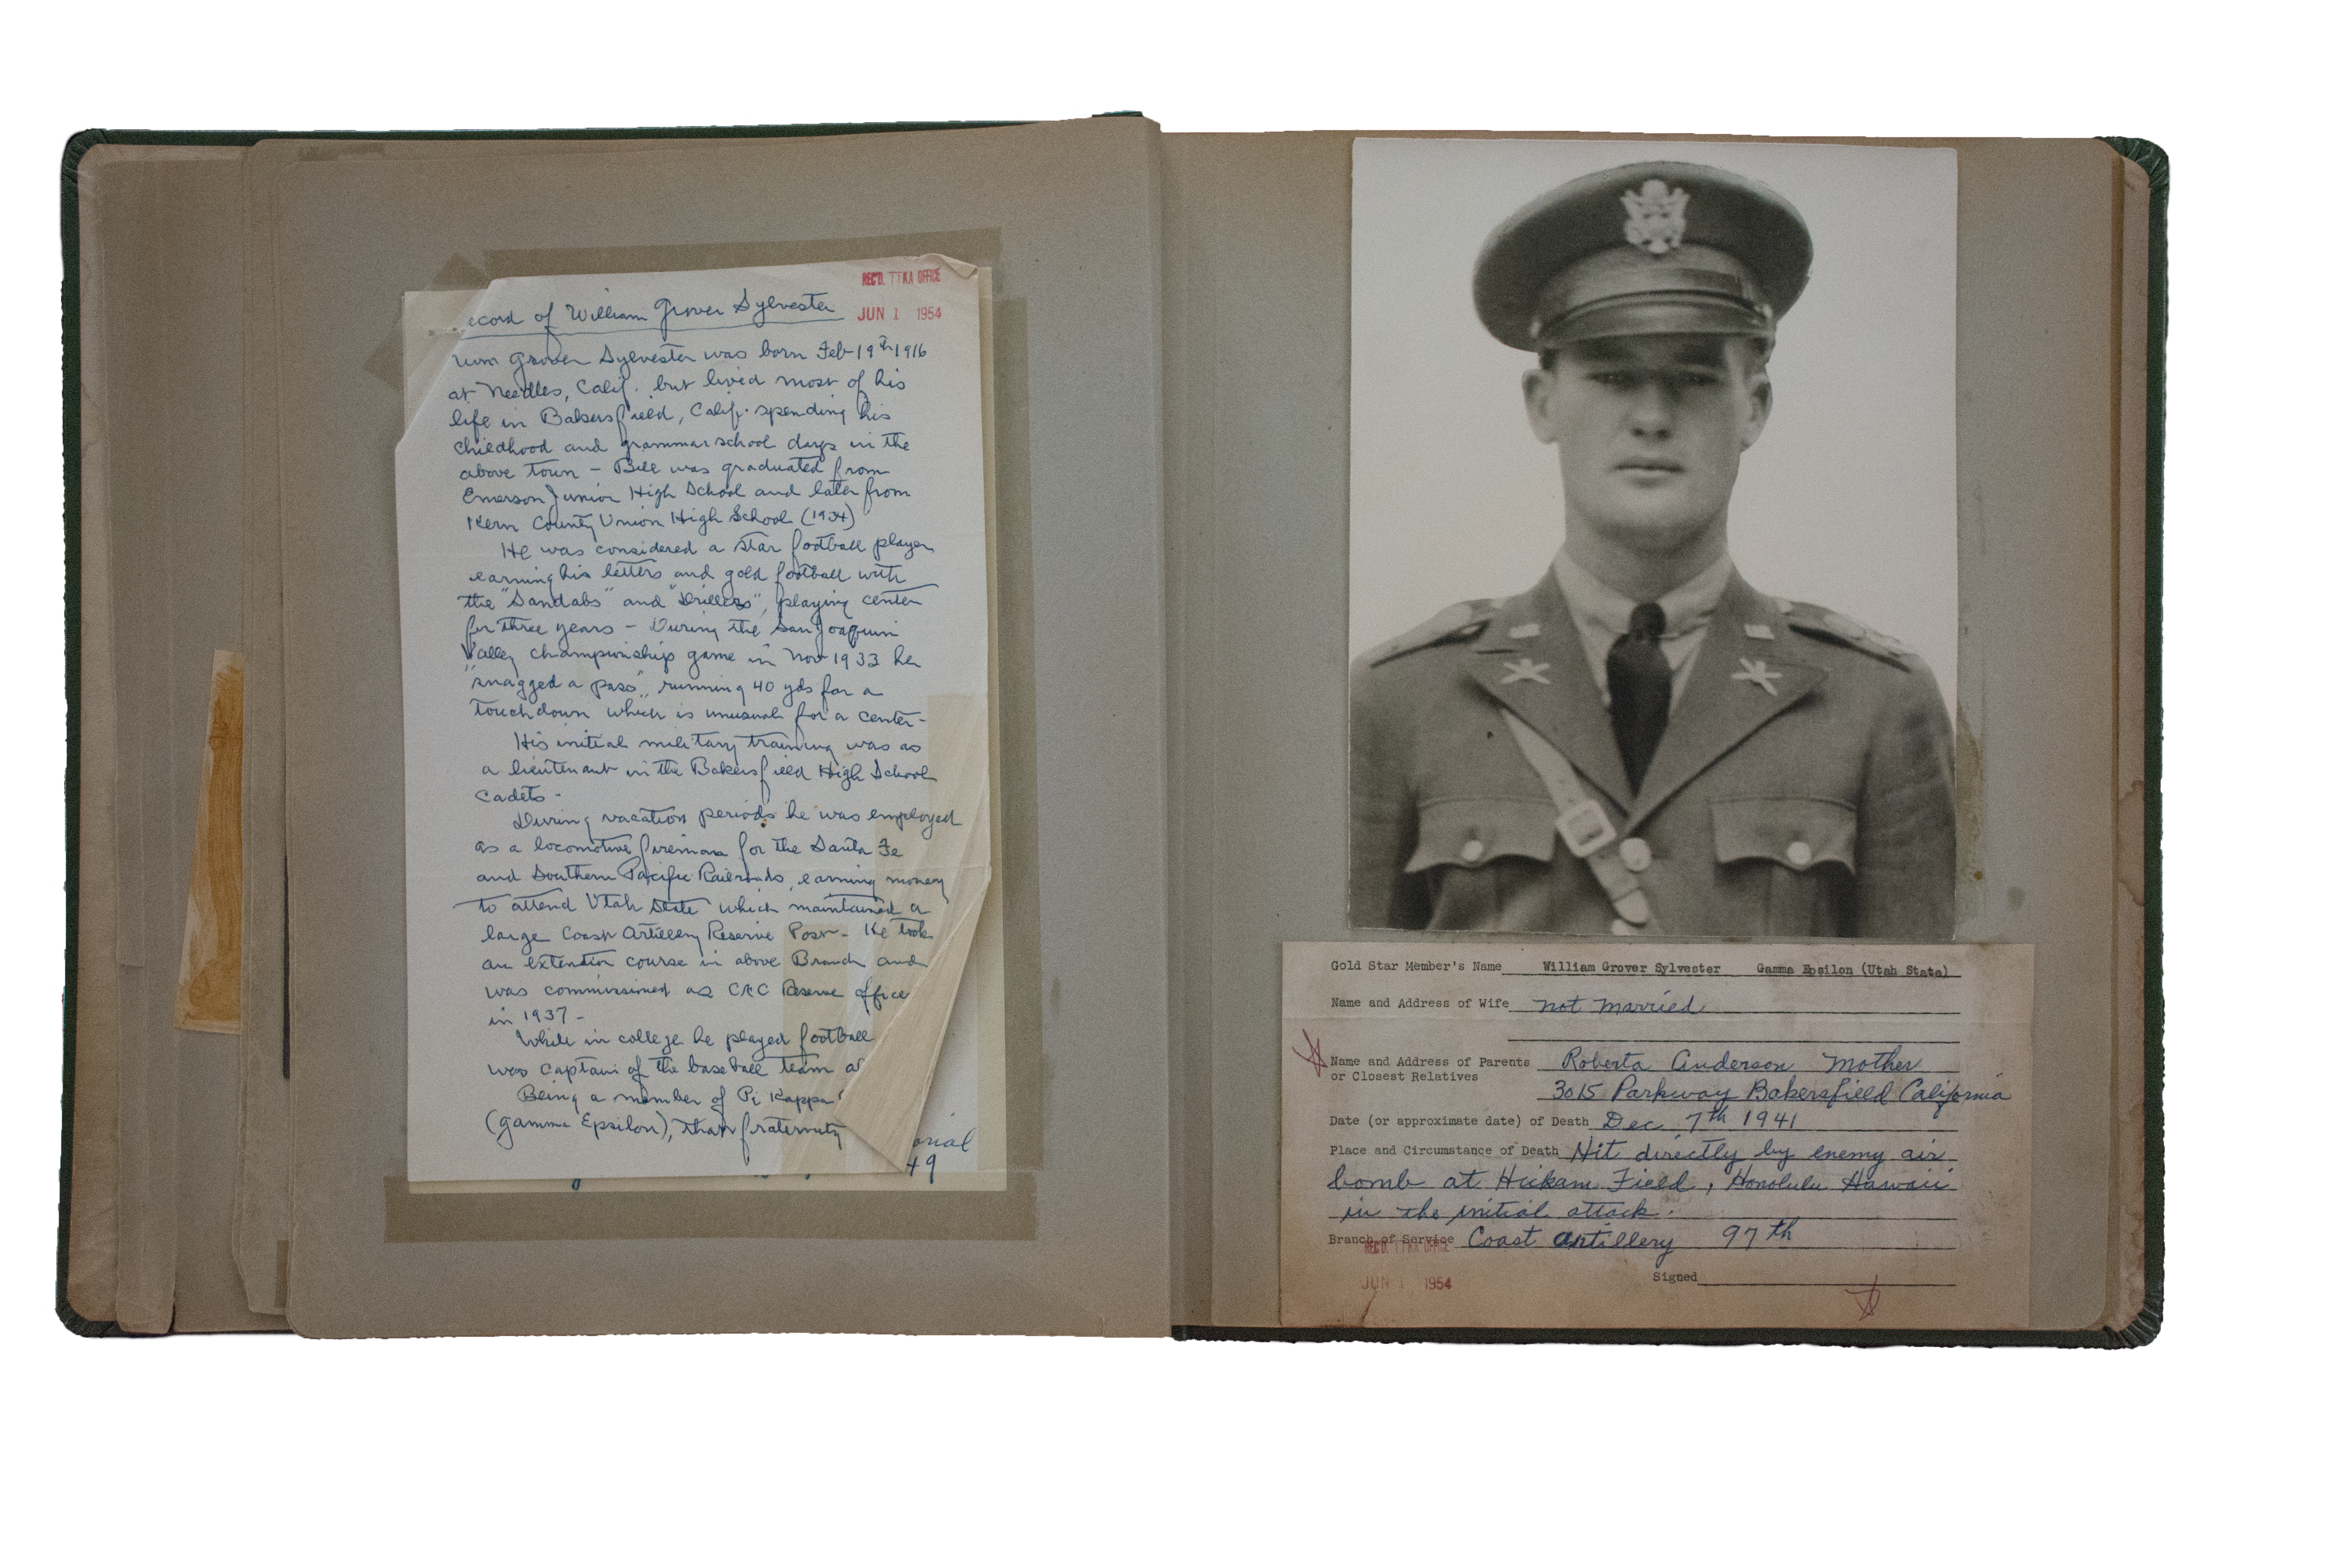 REC'D. ΠKA OFFICE
JUN 1 1954
ecord of William Grover Sylvester
Wm Grover Sylvester was born Feb 19th 1916
at Needles, Calif. but lived most of his
life in Bakersfield, Calif. spending his
childhood and grammar school days in the
above town - Bill was graduated from
Emerson Junior High School and later from
Kern County Union High School (1934)
He was considered a star football player
earning his letters and gold football with
the "Sandabs" and "Drillers", playing center
for three years - During the San Joaquin
Valley championship game in Nov 1933 he
"snagged a pass", running 40 yds for a
touchdown which is unusual for a center-
His initial military training was as
a lieutenant in the Bakersfield High School
Cadets -
During vacation periods he was employed
as a locomotive fireman for the Santa Fe
and Southern Pacific Railroads, earning money
to attend Utah State which maintained a
large Coast Artillery Reserve Post - He took
an extention course in above Branch and
was commissioned as Reserve office
in 1937 -
While in college he played football
was captain of the baseball team a
Being a member of Pi Kappa
(Gamma Epsilon), that fraternity
orial
49
Gold Star Member's Name William Grover Sylvester Gamma Epsilon (Utah State)
Name and Address of Wife Not Married
Name and Address of Parents Roberta Anderson Mother
or Closest Relatives
3015 Parkway Bakersfield California
Date (or approximate date) of Death Dec 7th 1941
Place and Circumstance of Death Hit directly by enemy air
bomb at Hickam Field, Honolulu Hawaii
in the initial attack.
Branch of Service Coast Artillery 97th
REC'D. ΠKA OFFICE
JUN 1 1954
Signed